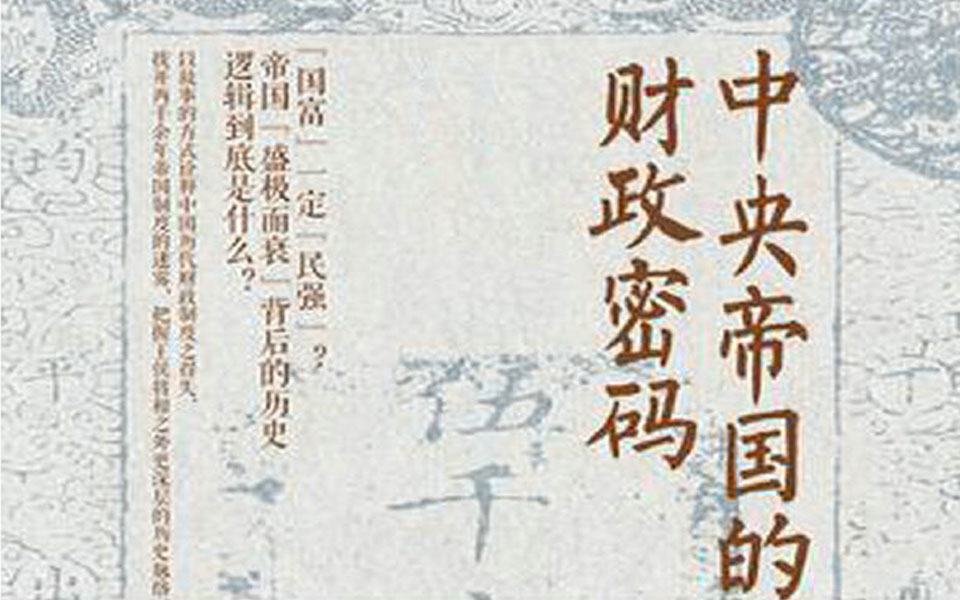 中央帝国的
财政密码
「国富」一定「民强」?
帝国「盛极而衰」背后的历史
逻辑到底是什么?
以故事的方式诠释中国历代财政制度之得失,
拨开两千余年帝国制度的迷雾,把握王侯将相之外更深层的历史脉络
伍
千